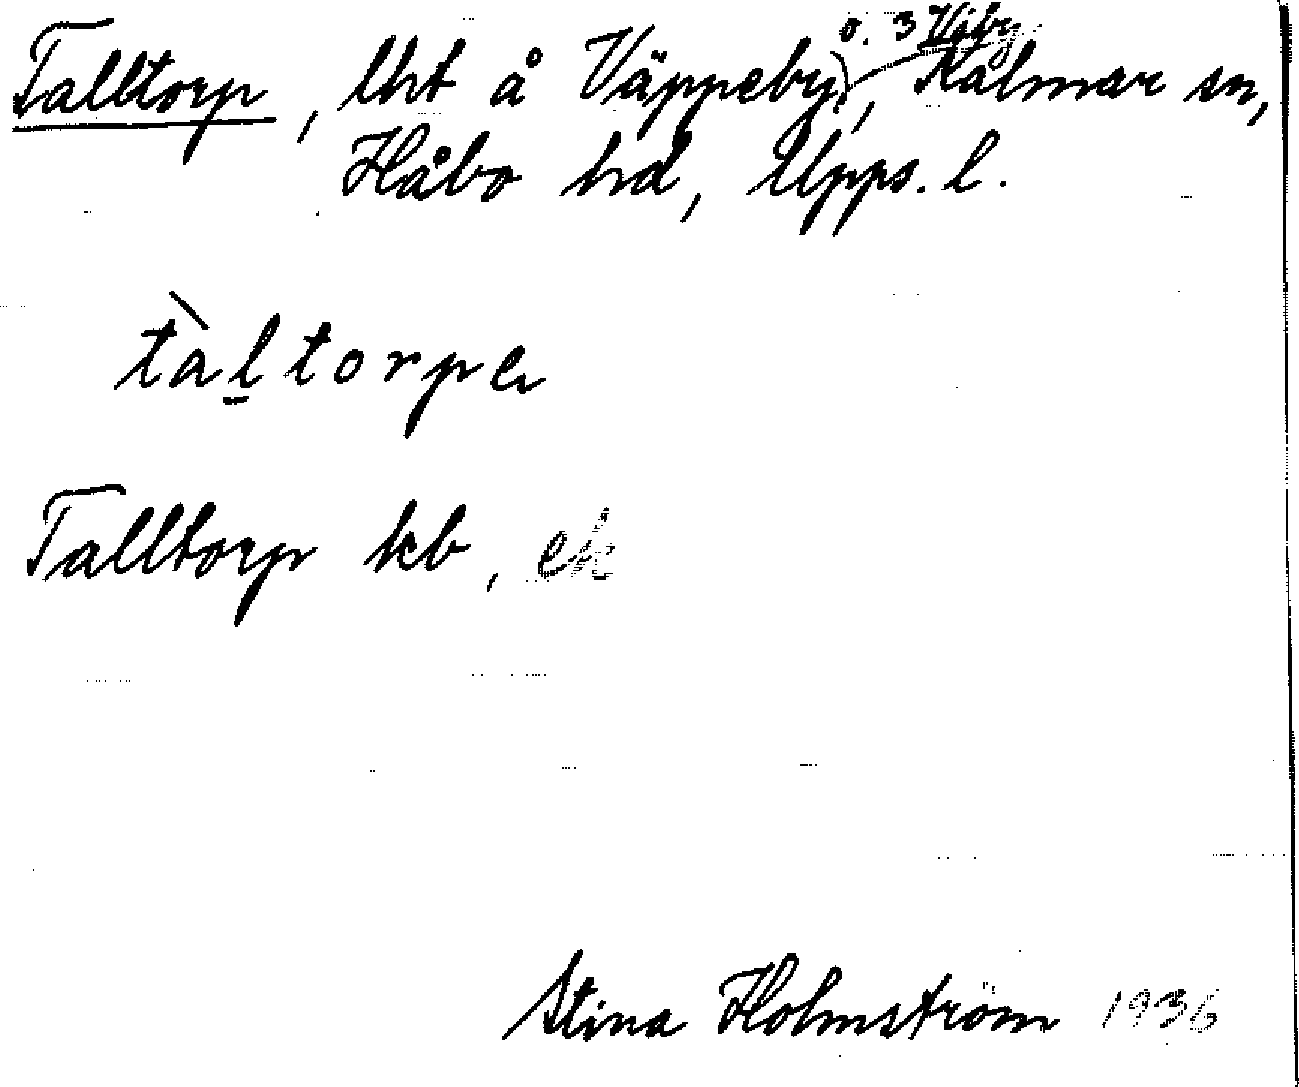 Talltorp, lht å Väppeby, o. 3 Viby, Kalmar sn,
Håbo hd, Upps. l.
tàltorpe
Talltorp kb, ek
Stina Holmström 1936